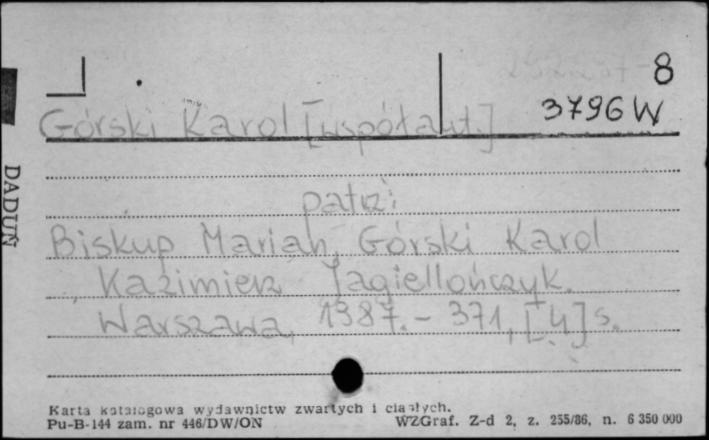 8
3796 W
Górski Karol [współaut.]
DADUŃ
patrz:
Biskup Marian, Górski Karol
Kazimierz Jagiellończyk.
Warszawa, 1387. - 371, [4] s.
Karta katalogowa wydawnictw zwartych i ciągłych.
Pu-B-144 zam. nr 446/DW/ON WZGraf. Z-d 2, z. 255/86, n. 6 350 000